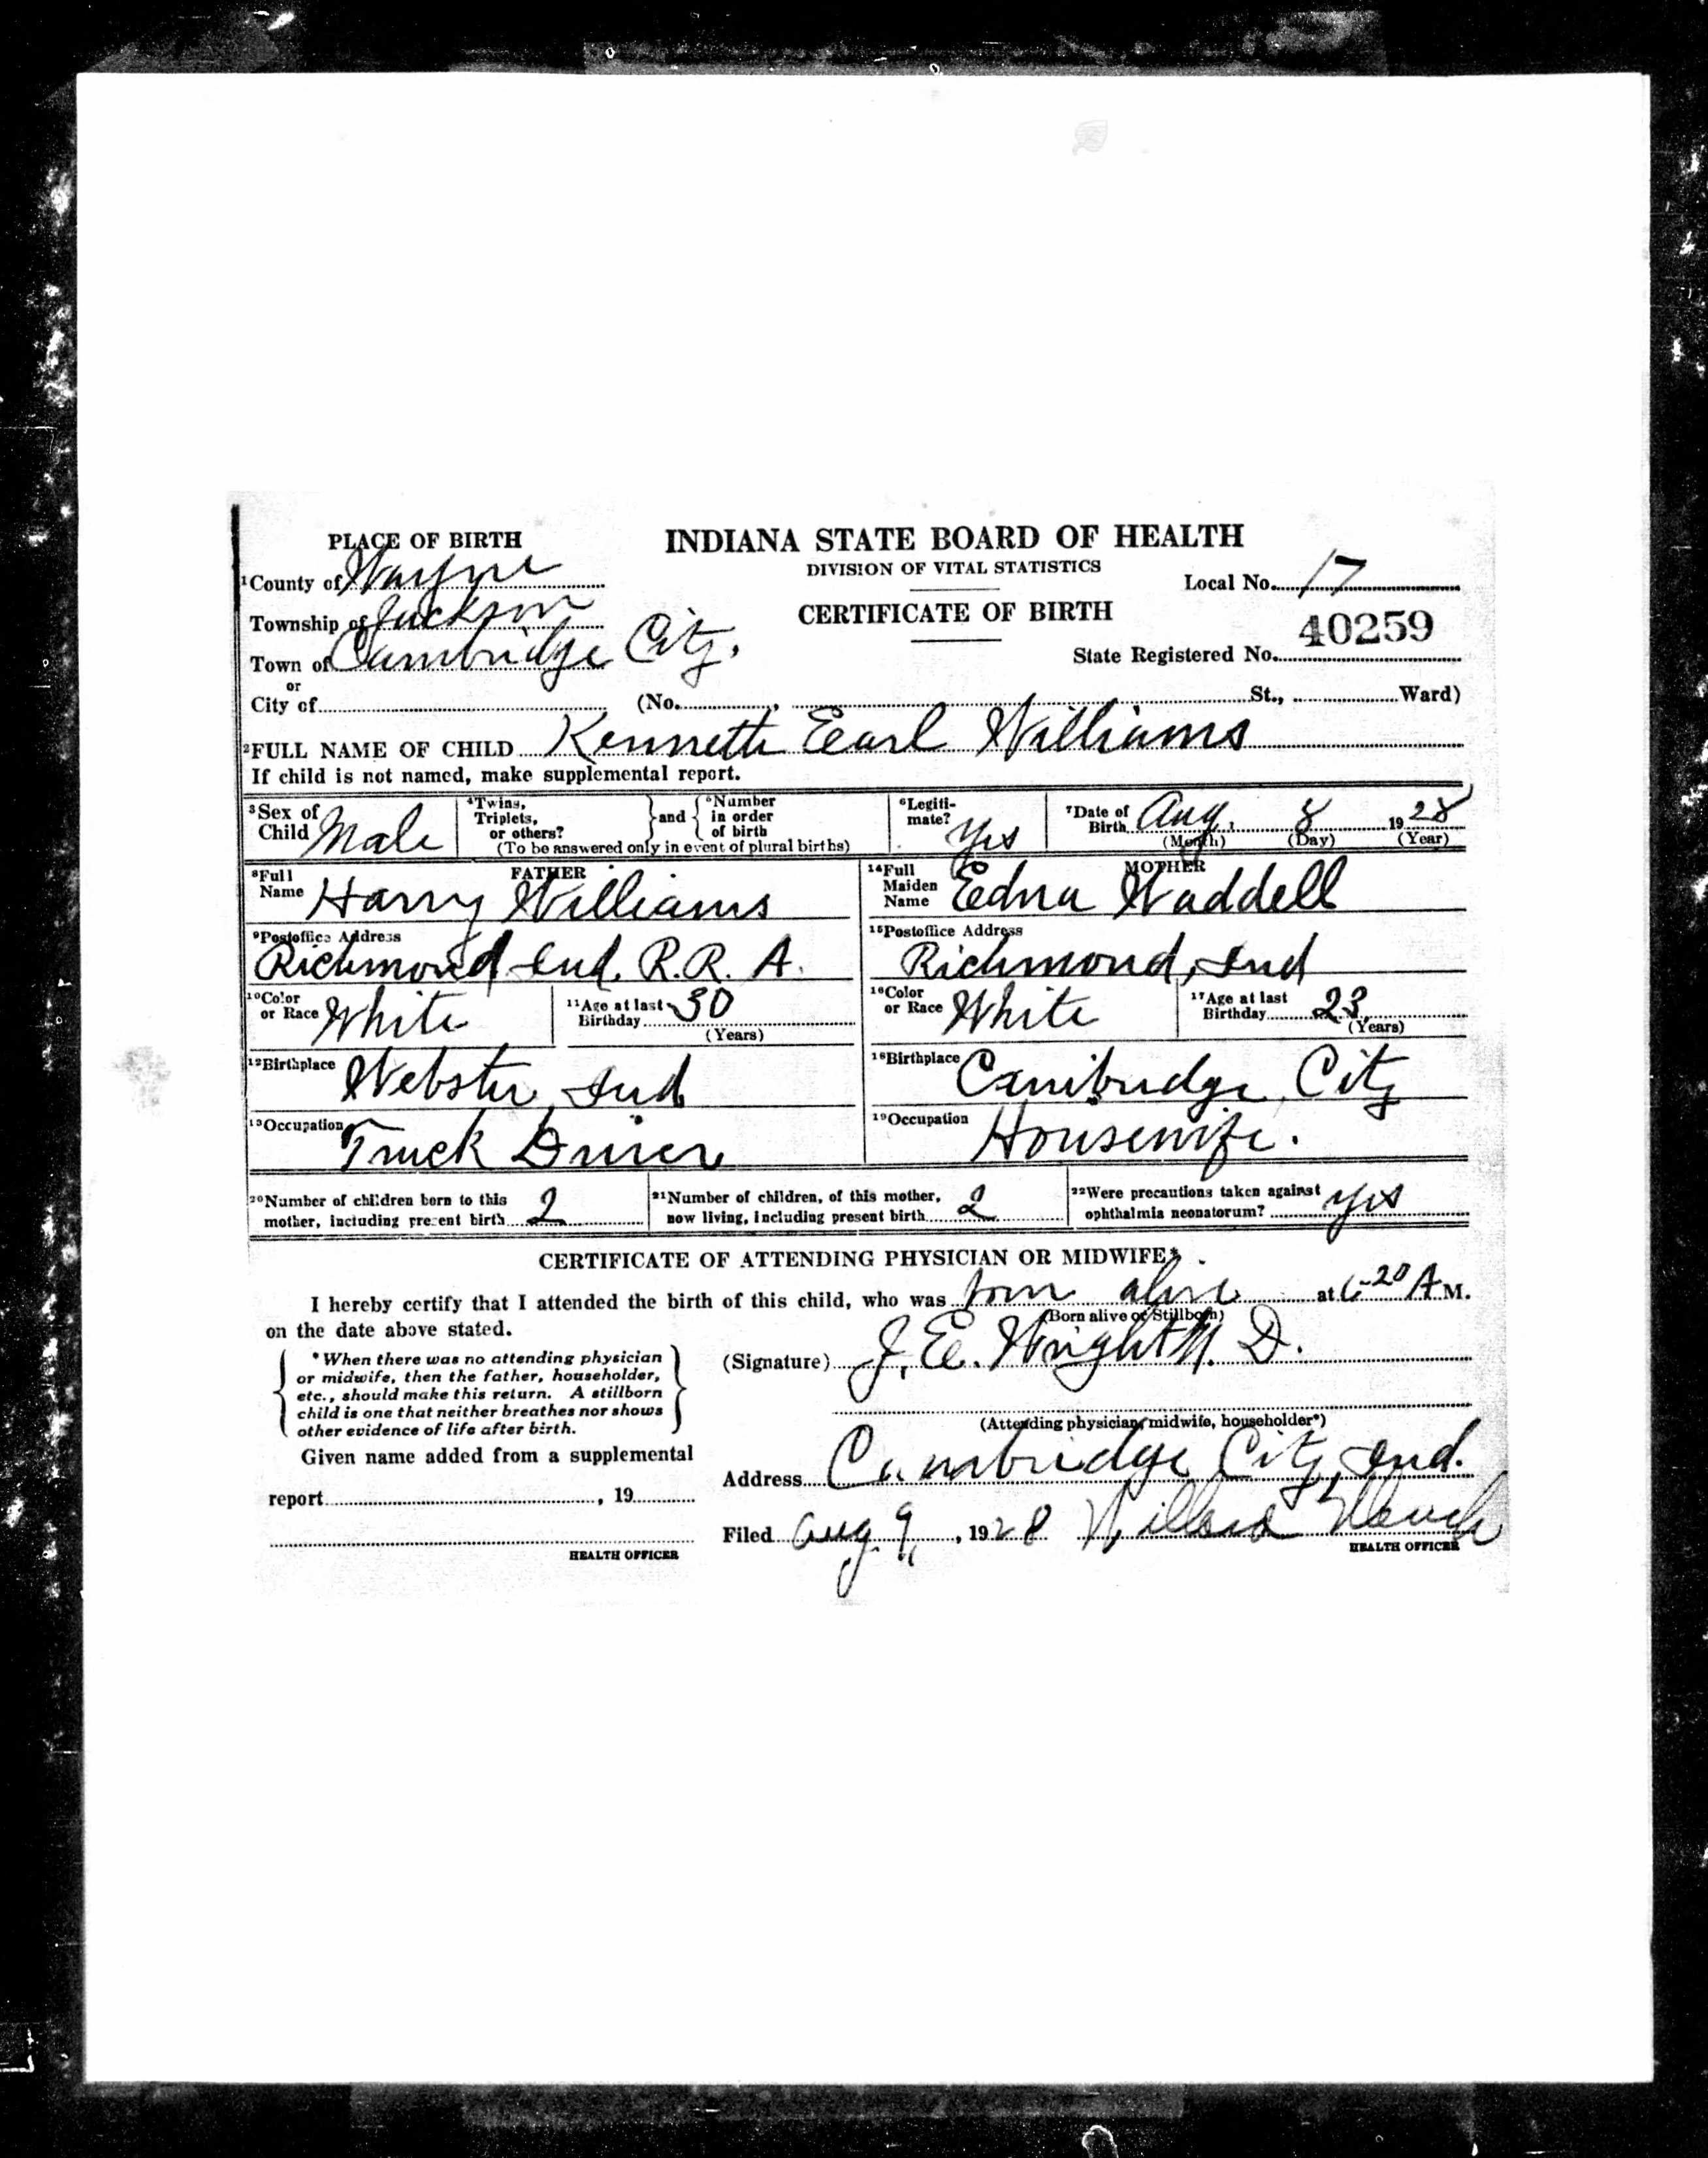 PLACE OF BIRTH
INDIANA STATE BOARD OF HEALTH
DIVISION OF VITAL STATISTICS
1 County of Wayne
Local No. 17
Township of Jackson
CERTIFICATE OF BIRTH
40259
Town of Cambridge City.
State Registered No.
or
City of (No. , St., Ward)
2 FULL NAME OF CHILD Kenneth Earl Williams
If child is not named, make supplemental report.
3 Sex of Child Male
4 Twins, Triplets, or others? } and { 5 Number in order of birth
(To be answered only in event of plural births)
6 Legiti-mate? Yes
7 Date of Birth Aug. 8 1928
(Month) (Day) (Year)
FATHER
8 Full Name Harry Williams
MOTHER
14 Full Maiden Name Edna Waddell
9 Postoffice Address
Richmond Ind. R.R. A.
15 Postoffice Address
Richmond, Ind
10 Color or Race White
11 Age at last Birthday 30
(Years)
16 Color or Race White
17 Age at last Birthday 23
(Years)
12 Birthplace Webster, Ind
18 Birthplace Cambridge City
13 Occupation Truck Driver
19 Occupation Housewife.
20 Number of children born to this mother, including present birth 2
21 Number of children, of this mother, now living, including present birth 2
22 Were precautions taken against ophthalmia neonatorum? yes
CERTIFICATE OF ATTENDING PHYSICIAN OR MIDWIFE*
I hereby certify that I attended the birth of this child, who was born alive at 6-20 A M.
(Born alive or Stillborn)
on the date above stated.
* When there was no attending physician
or midwife, then the father, householder,
etc., should make this return. A stillborn
child is one that neither breathes nor shows
other evidence of life after birth.
(Signature) J. E. Wright M. D.
(Attending physician, midwife, householder*)
Given name added from a supplemental
report , 19
HEALTH OFFICER
Address Cambridge City, Ind.
Filed Aug 9, , 1928
HEALTH OFFICER